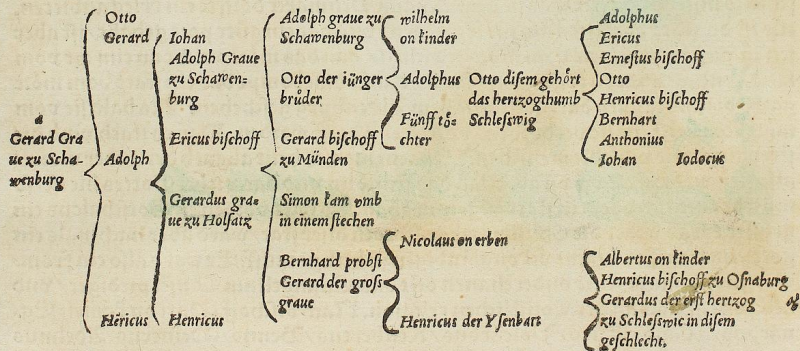 a
Gerard Gra
ue zu Scha-
wenburg
Otto
Gerard
Adolph
Héricus
Iohan
Adolph Graue
zu Schawen-
burg
Ericus bischoff
Gerardus gra-
ue zu Holsatz
Henricus
Adolph graue zu
Schawenburg
Otto der iünger
brůder
Gerard bischoff
zu Münden
Simon kam vmb
in einem stechen
Bernhard probst
Gerard der gross
graue
wilhelm
on kinder
Adolphus
Fünff tö-
chter
Otto disem gehört
das hertzogthumb
Schlesswig
Adolphus
Ericus
Ernestus bischoff
Otto
Henricus bischoff
Bernhart
Anthonius
Iohan Iodocus
Nicolaus on erben
Henricus der Ysenbart
Albertus on kinder
Henricus bischoff zu Osnaburg
Gerardus der erst hertzog
zu Schlesswic in disem
geschlecht.